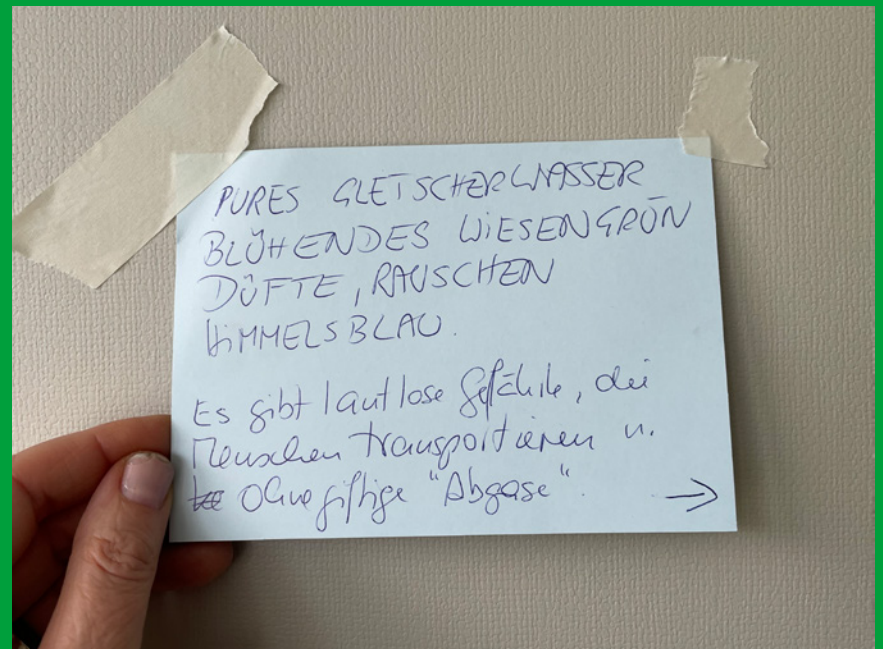 PURES GLETSCHERWASSER
BLÜHENDES WiESENGRÜN
DÜFTE, RAUSCHEN
HiMMELSBLAU.
Es gibt lautlose Gefährte, die
Menschen transportieren u.
ohne giftige "Abgase".
→